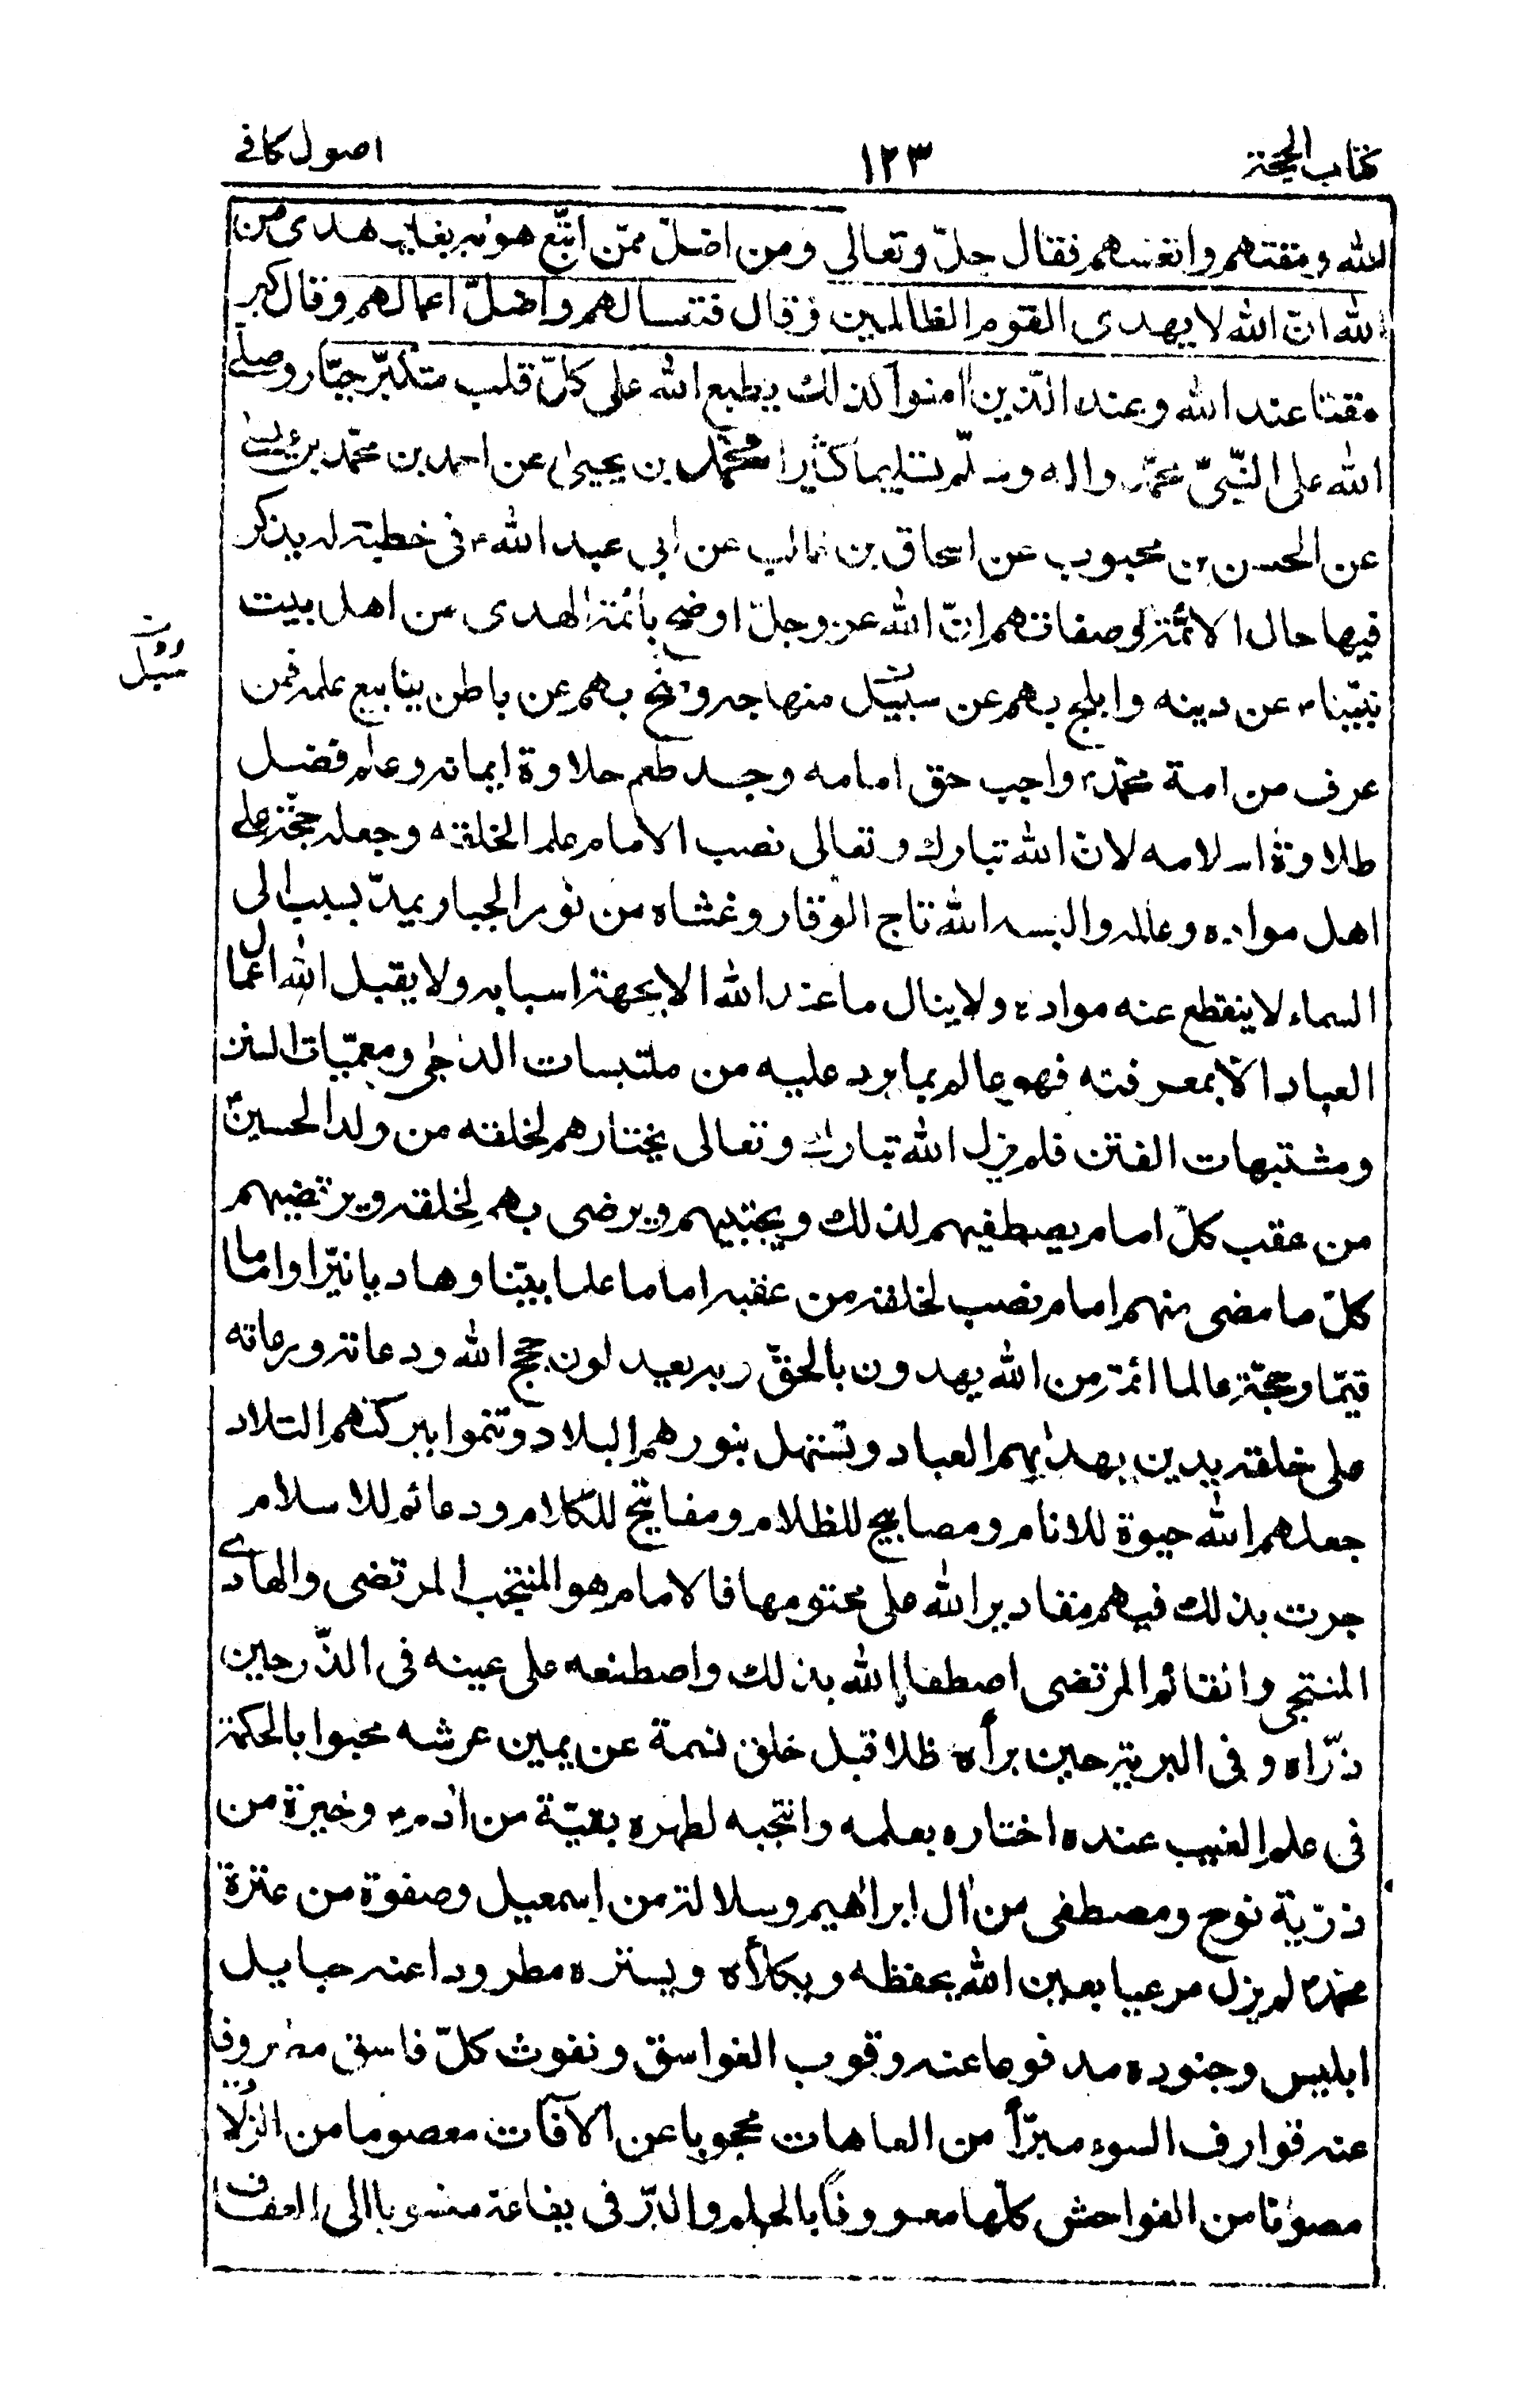 كتاب الحجة ١٢٣ اصول كافى
الله ومقتهم واتعسهم فقال جلّ وتعالى ومن اضلّ ممّن اتّبع هوٰيه بغير هدى من
الله انّ الله لا يهدى القوم الظالمين وقال فتعسا لهم واضلّ اعمالهم وقال كبر
مقتا عند الله وعند الّذين امنوا كذلك يطبع الله على كلّ قلب متكبّر جبّار وصلّى
الله على النّبىّ محمّد واله وسلّم تسليما كثيرا محمّد بن يحيىٰ عن احمد بن محمّد بن عيسى
عن الحسن بن محبوب عن اسحاق بن غالب عن ابى عبد الله ؑ فى خطبة له يذكر
فيها حال الائمّة ؑ وصفاتهم انّ الله عز وجلّ اوضح بائمّة الهدى من اهل بيت
نبيّنا ؐ عن دينه وابلج بهم عن سبيل منهاجه وفتح بهم عن باطن ينابيع علمه فمن
سبل
عرف من امة محمّد ؐ واجب حق امامه وجد طعم حلاوة ايمانه وعلم فضل
طلاوة اسلامه لان الله تبارك وتعالى نصب الامام علما لخلقه وجعله حجّة على
اهل مواده وعالمه والبسه الله تاج الوقار وغشاه من نور الجبار يمدّ بسبب الى
السماء لا ينقطع عنه مواده ولا ينال ما عند الله الا بجهة اسبابه ولا يقبل الله اعمال
العباد الّا بمعرفته فهو عالم بما يرد عليه من ملتبسات الدّجى ومعمّيات السنن
ومشتبهات الفتن فلم يزل الله تبارك وتعالى يختارهم لخلقه من ولد الحسين ؑ
من عقب كلّ امام يصطفيهم لذلك ويجتبيهم ويرضى بهم لخلقه ويرتضيهم
كلّ ما مضى منهم امام نصب لخلقه من عقبه اماما علما بيّنا وهاديا نيّرا واماما
قيّما وحجّة عالما ائمة من الله يهدون بالحقّ وبه يعدلون حجج الله ودعاته ورعاته
على خلقه يدين بهديهم العباد وتستهل بنورهم البلاد وتنموا ببركتهم التلاد
جعلهم الله حيوة للانام ومصابيح للظلام ومفاتيح للكلام ودعائم للاسلام
جرت بذلك فيهم مقادير الله على محتومها فالامام هو المنتجب المرتضى والهادى
المنتجى والقائم المرتضى اصطفاه الله بذلك واصطنعه على عينه فى الذّر حين
ذرّاه وفى البرية حين برأه ظلا قبل خلق نسمة عن يمين عرشه محبوا بالحكمة
فى علم الغيب عنده اختاره بعلمه وانتجبه لطهره بقيّة من ادم ؑ وخيرة من
ذرّية نوح ومصطفى من اٰل ابراهيم وسلالة من اسمعيل وصفوة من عترة
محمّد ؐ لم يزل مرعيا بعين الله يحفظه ويكلأه ويستره مطرودا عنه حبايل
ابليس وجنوده مدفوعا عنه وقوب الغواسق ونفوث كلّ فاسق مصروفا
عنه قوارف السوء مبرّأ من العاهات محجوبا عن الآفات معصوما من الزّلات
مصونا من الفواحش كلّها معروفا بالحلم والبرّ فى يفاعه منسوبا الى العفاف